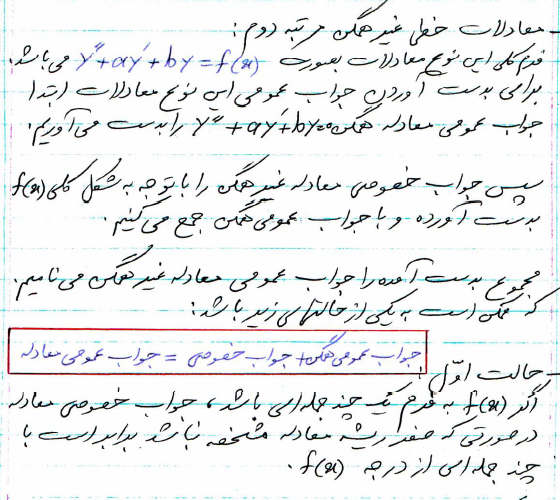 - معادلات خطی غیر همگن مرتبه دوم:
فرم کلی این نوع معادلات بصورت y″+ay′+by=f(x) می باشد.
برای بدست آوردن جواب عمومی این نوع معادلات ابتدا
جواب عمومی معادله همگن y″+ay′+by=0 را بدست می آوریم.
سپس جواب خصوصی معادله غیر همگن را با توجه به شکل کلی f(x)
بدست آورده و با جواب عمومی همگن جمع می کنیم.
مجموع بدست آمده را جواب عمومی معادله غیر همگن می نامیم.
که ممکن است به یکی از حالتهای زیر باشد:
جواب عمومی همگن + جواب خصوصی = جواب عمومی معادله
- حالت اوّل:
اگر f(x) به فرم یک چند جمله ای باشد، جواب خصوصی معادله
در صورتی که صفر ریشه معادله مشخصه نباشد برابر است با
چند جمله ای از درجه f(x).